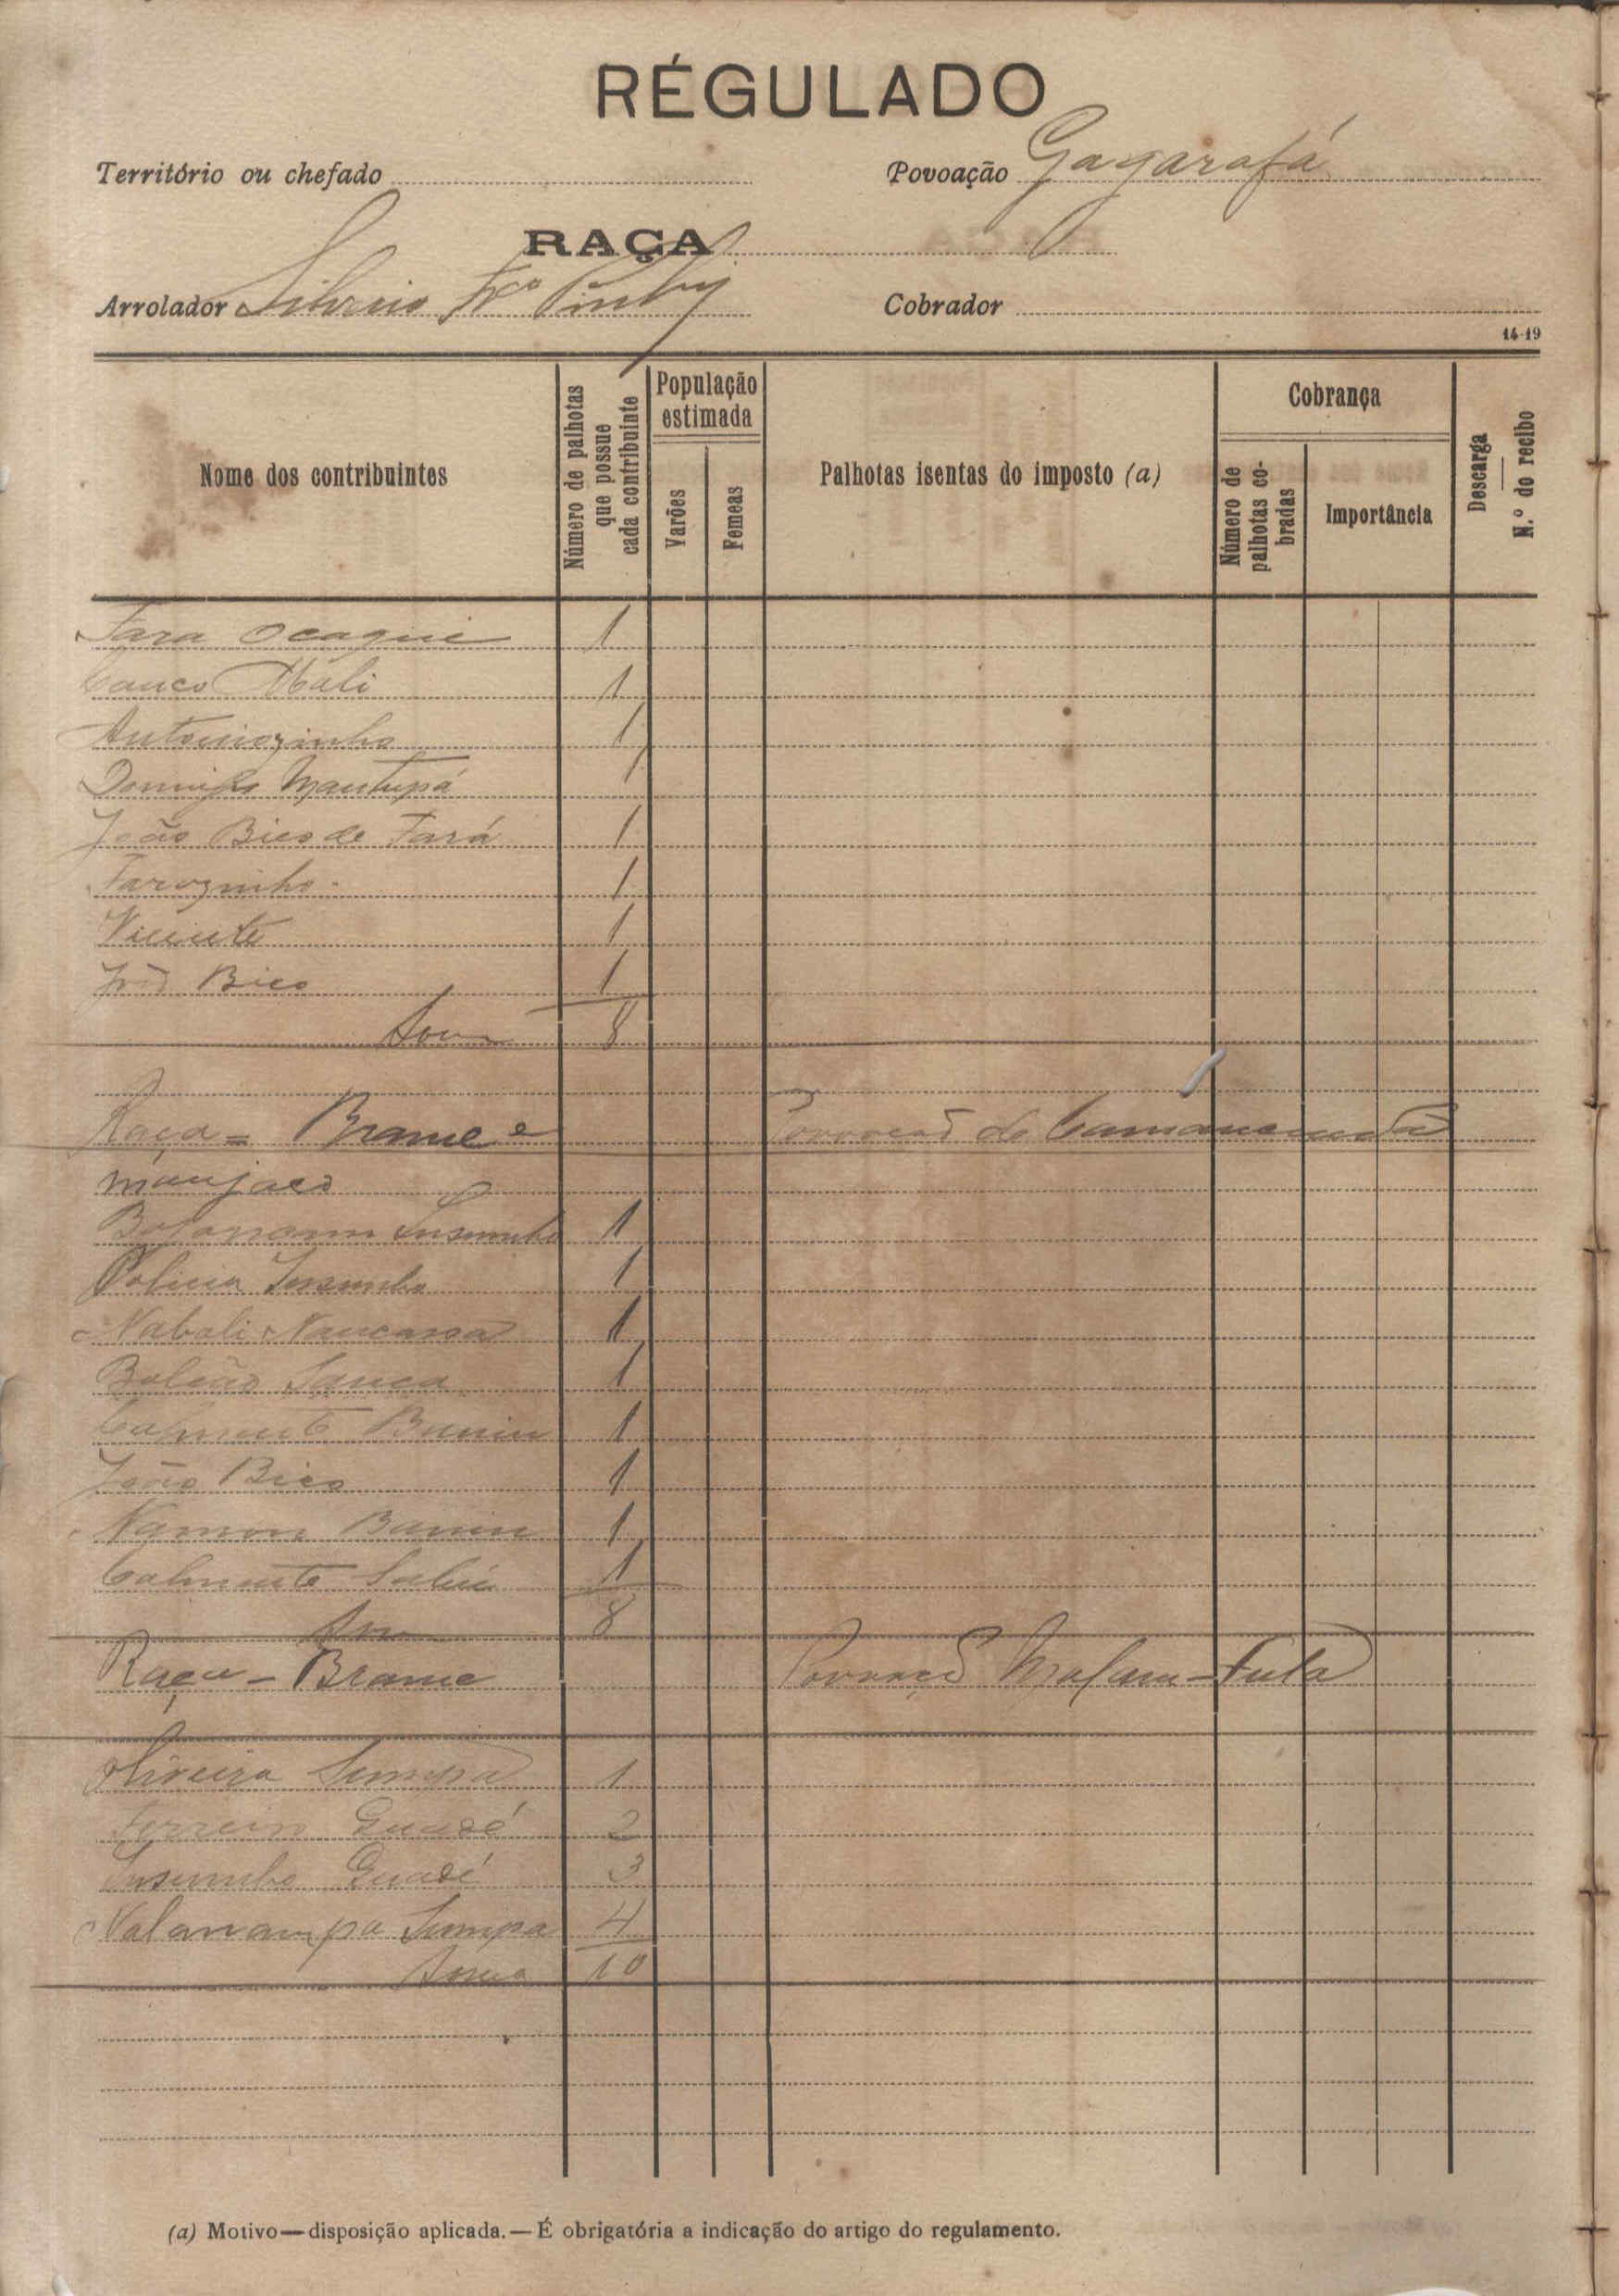 RÉGULADO
Território ou chefado
Povoação Gagarafá
RAÇA
Arrolador Silverio Frco
Cobrador
14-19
Nome dos contribuintes
Número de palhotas que possue cada contribuinte
População estimada
Varões
Femeas
Palhotas isentas do imposto (a)
Cobrança
Número de palhotas cobradas
Importância
Descarga
N.º do recibo
Fara Ocaqui 1
Mali 1
Antoniozinho 1
Domingos Mantupá 1
João Bico de Fará 1
Farozinho 1
Vicente 1
João Bico 1
Soma 8
Raça = Brame e Povoação de
manjaco
Insumbo 1
Policia Insumbo 1
Nabali Nancassa 1
Sanca 1
1
João Bico 1
Namon Banin 1
Calmente 1
Soma 8
Raça - Brame Povoação Mafam-Fula
Oliveira Sumpa 1
Ferreira Guadé 2
Insumbo Guadé 3
Sumpa 4
Soma 10
(a) Motivo—disposição aplicada.—É obrigatória a indicação do artigo do regulamento.